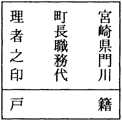 宮崎県門川
町長職務代
理者之印
戸籍